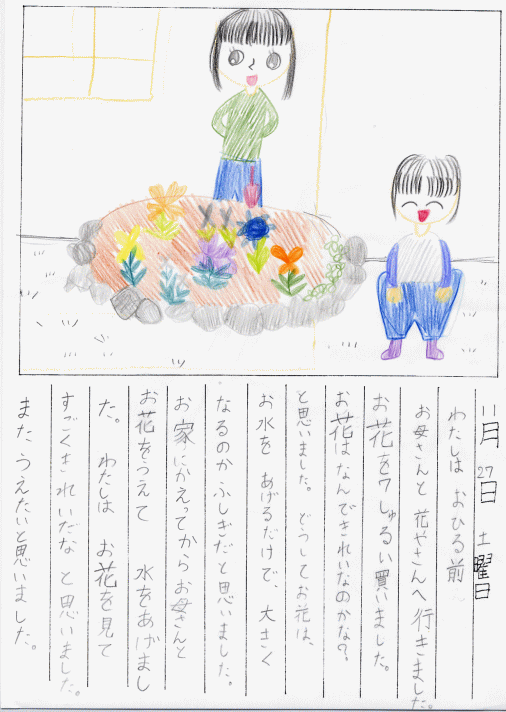 11月27日 土曜日
わたしは おひる前
お母さんと 花やさんへ 行きました。
お花を7しゅるい買いました。
お花はなんできれいなのかな?
と思いました。 どうしてお花は、
お水を あげるだけで、大きく
なるのかふしぎだと思いました。
お家にかえってからお母さんと
お花をうえて 水をあげまし
た。 わたしは お花を見て
すごくきれいだな と思いました。
また うえたいと思いました。